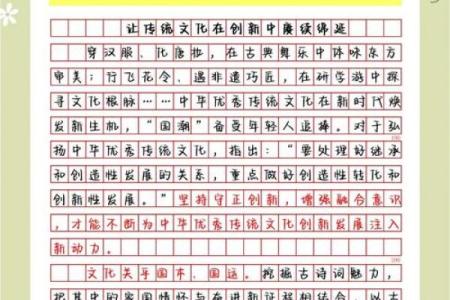 让传统文化在创新中赓续绵延
穿汉服、化唐妆，在古典舞乐中体味东方
审美；行飞花令、遇非遗巧匠，在研学游中探
寻文化根脉……中华优秀传统文化在新时代焕
发新生机，“国潮”备受年轻人追捧。对于弘
扬中华优秀传统文化，指出：“要处理好继承
和创造性发展的关系，重点做好创造性转化和
创新性发展。”坚持守正创新，增强融合意识
，才能不断为中华优秀传统文化创新发展注入
新动力。
文化关乎国本、国运。挖掘古诗词魅力，
把其中的家国情怀与奋进新征程结合，以古